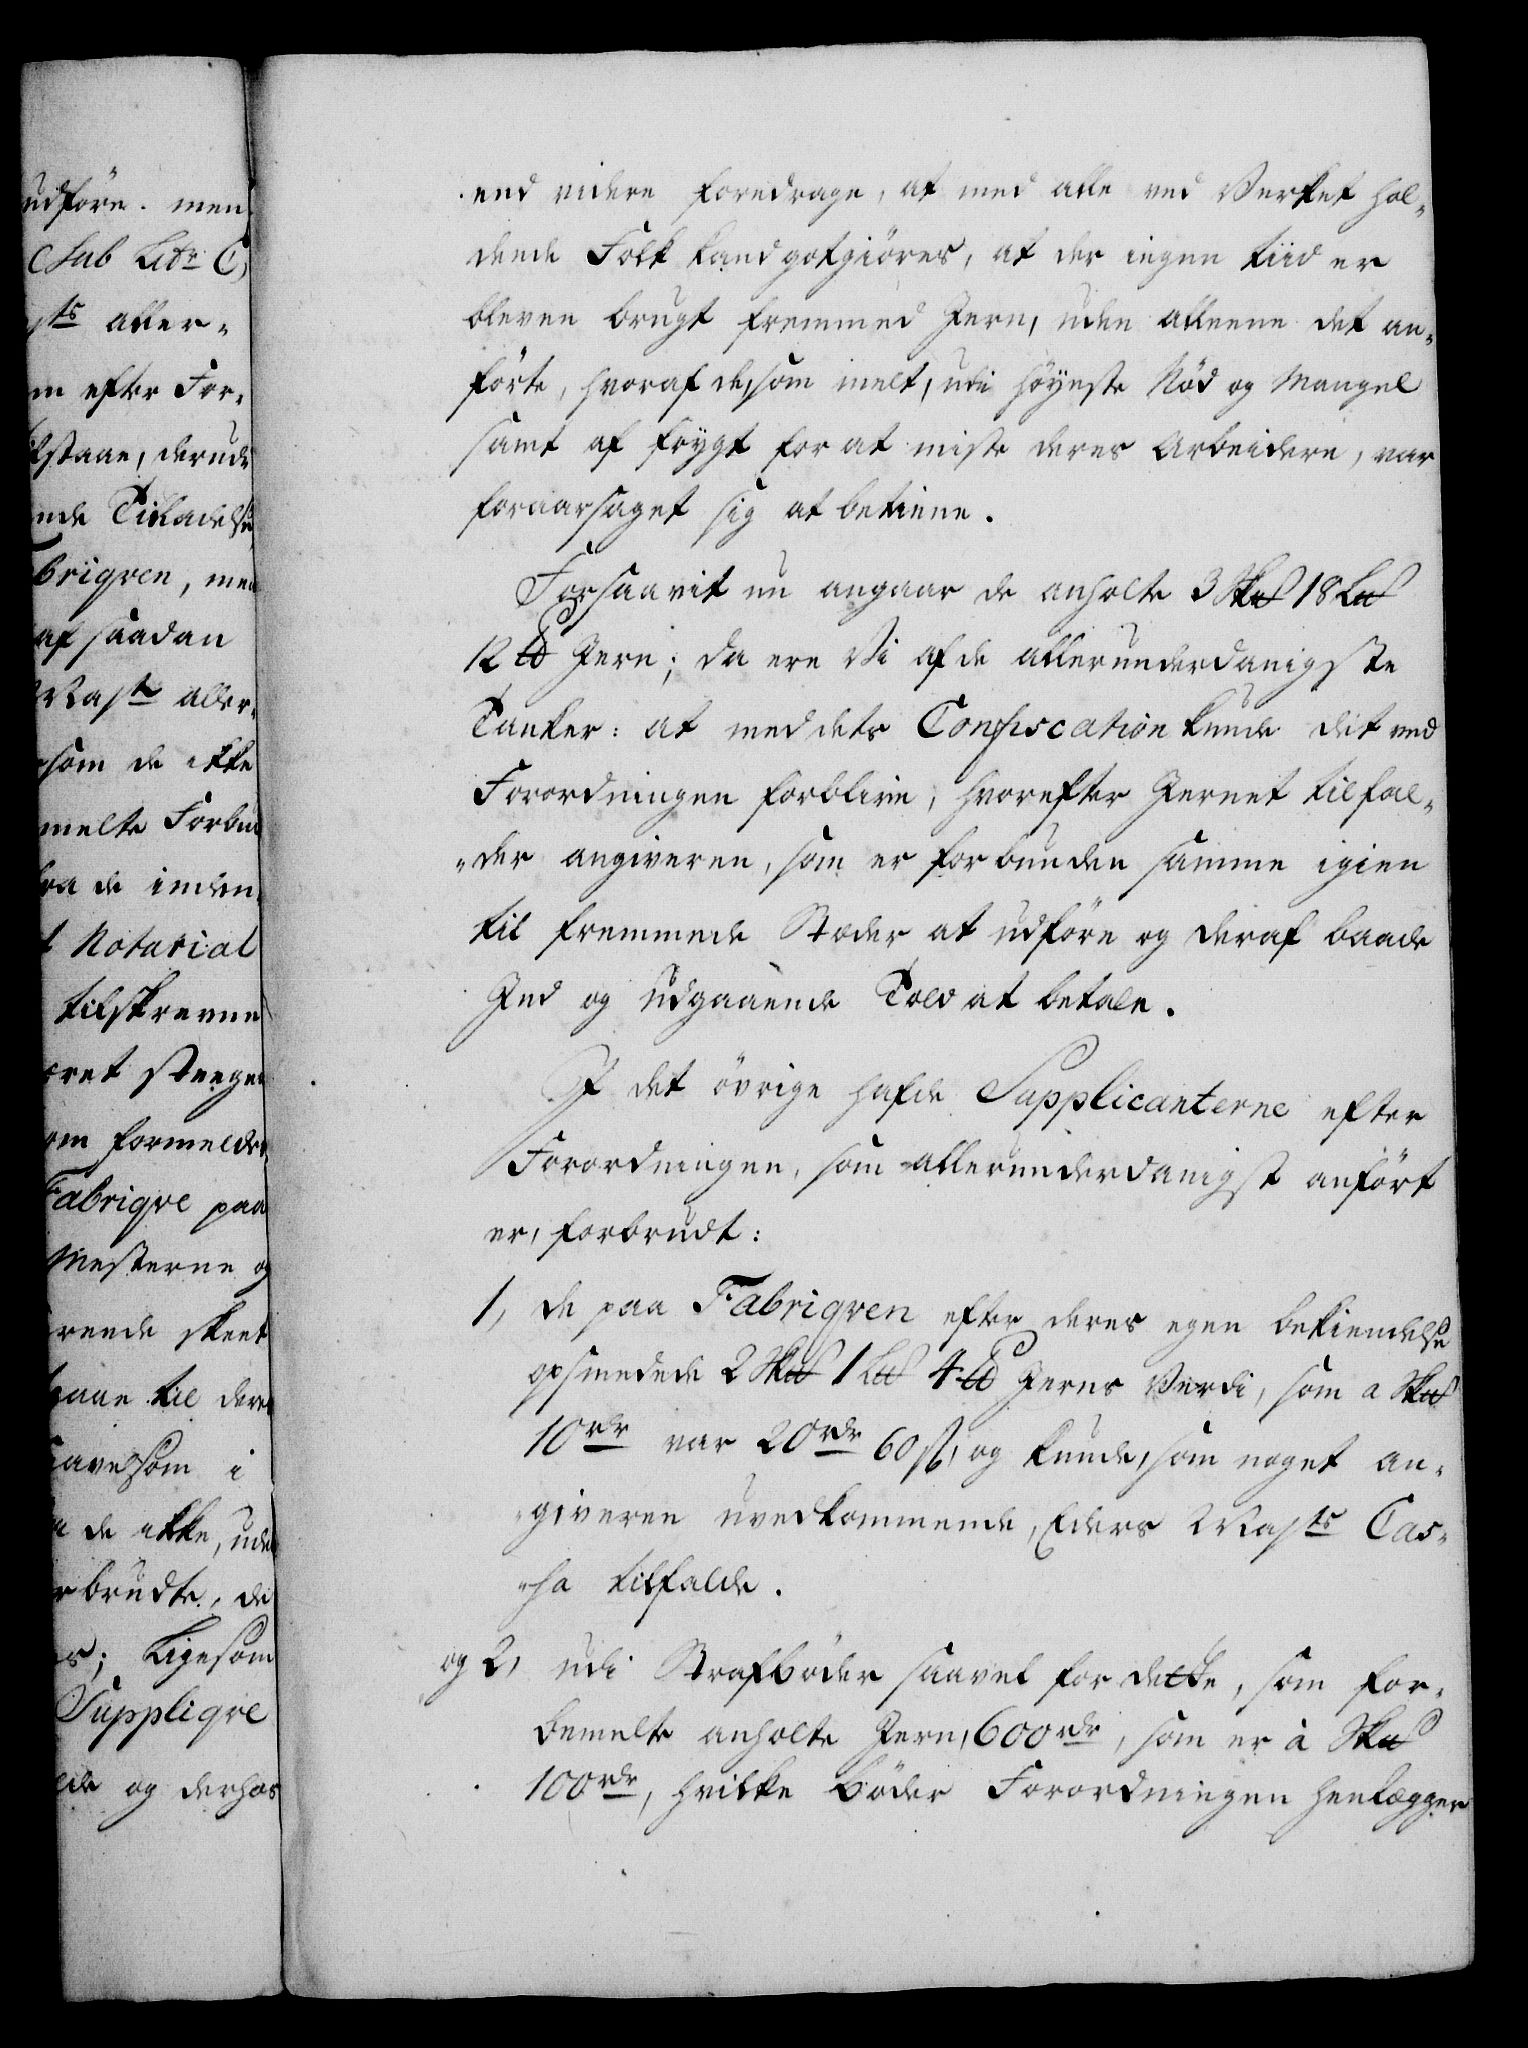 udföre. men
(Sub Litr: C)
allen-
efter For-
staae, derudi
Tilladelse
brigven, men
af saadan
Mayts aller-
som de ikke
melte Forbud
fra de inden-
Notarial
tilskrevne
formeldet
Fabrigve paa
Mesterne og
skeet
til deres
som i
de ikke, uden
brudte, de
Ligesom
Suppligve
og derhos
end videre foredrage, at med alle ved Verket hol-
dende Folk kand gotgiöres, at der ingen tiid er
bleven brugt fremmed Jern, uden alleene det an-
förte, hvoraf de, som melt, udi höyeste Nöd og Mangel
samt af frygt for at miste deres Arbeidere, var
foraarsaget sig at betiene.
Forsaavit nu angaar de anholte 3 Sk℔ 18 L℔
12 ℔ Jern; da ere Vi af de allerunderdanigste
Tanker: at med dets Confiscation kunde det ved
Forordningen forblive, hvorefter Jernet tilfal-
der angiveren, som er forbunden samme igien
til fremmede Stæder at udföre og deraf baade
Ind og udgaaende Told at betale.
I det övrige hafde Supplicanterne efter
Forordningen, som allerunderdanigst anfört
er, forbrudt:
1, de paa Fabrigven efter deres egen bekiendelse
opsmedede 2 Sk℔ 1 L℔ 4 ℔ Jerns Værdi, som a Sk℔
10 rdr var 20 rdr 60 ß, og kunde, som noget an-
giveren uvedkommende, Eders Mayts Cas-
sa tilfalde.
og 2, udi Strafböder saavel for dette, som for-
bemelte anholte Jern, 600 rdr, som er à Sk℔
100 rdr, hvilke Böder Forordningen henlægger